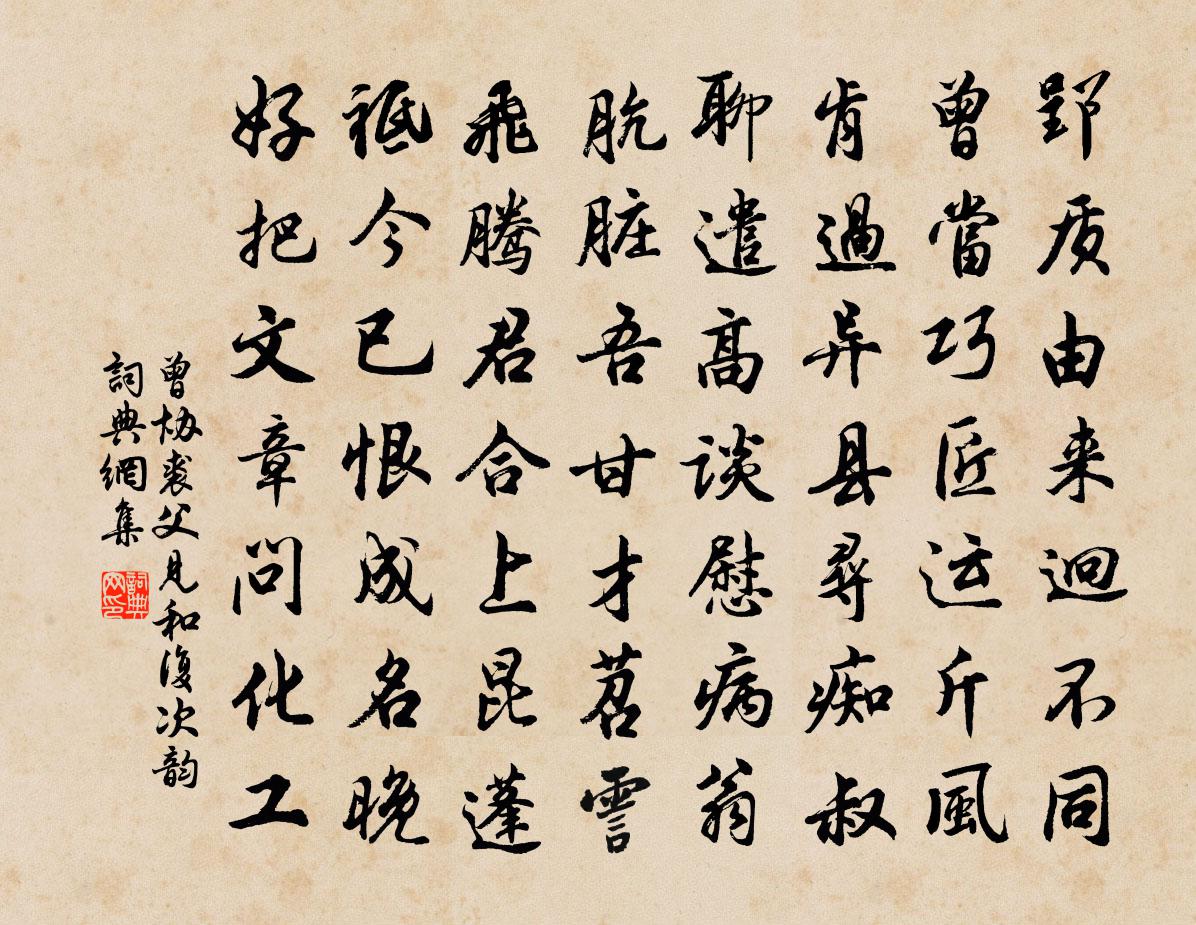 郢质由来迥不同
曾當巧匠运斤風
肯過异县尋痴叔
聊遣高谈慰病翁
肮脏吾甘才苕霅
飛騰君合上昆蓬
祗今已恨成名晚
好把文章问化工
曾协裘父见和復次韵
詞典網集
詞典网印